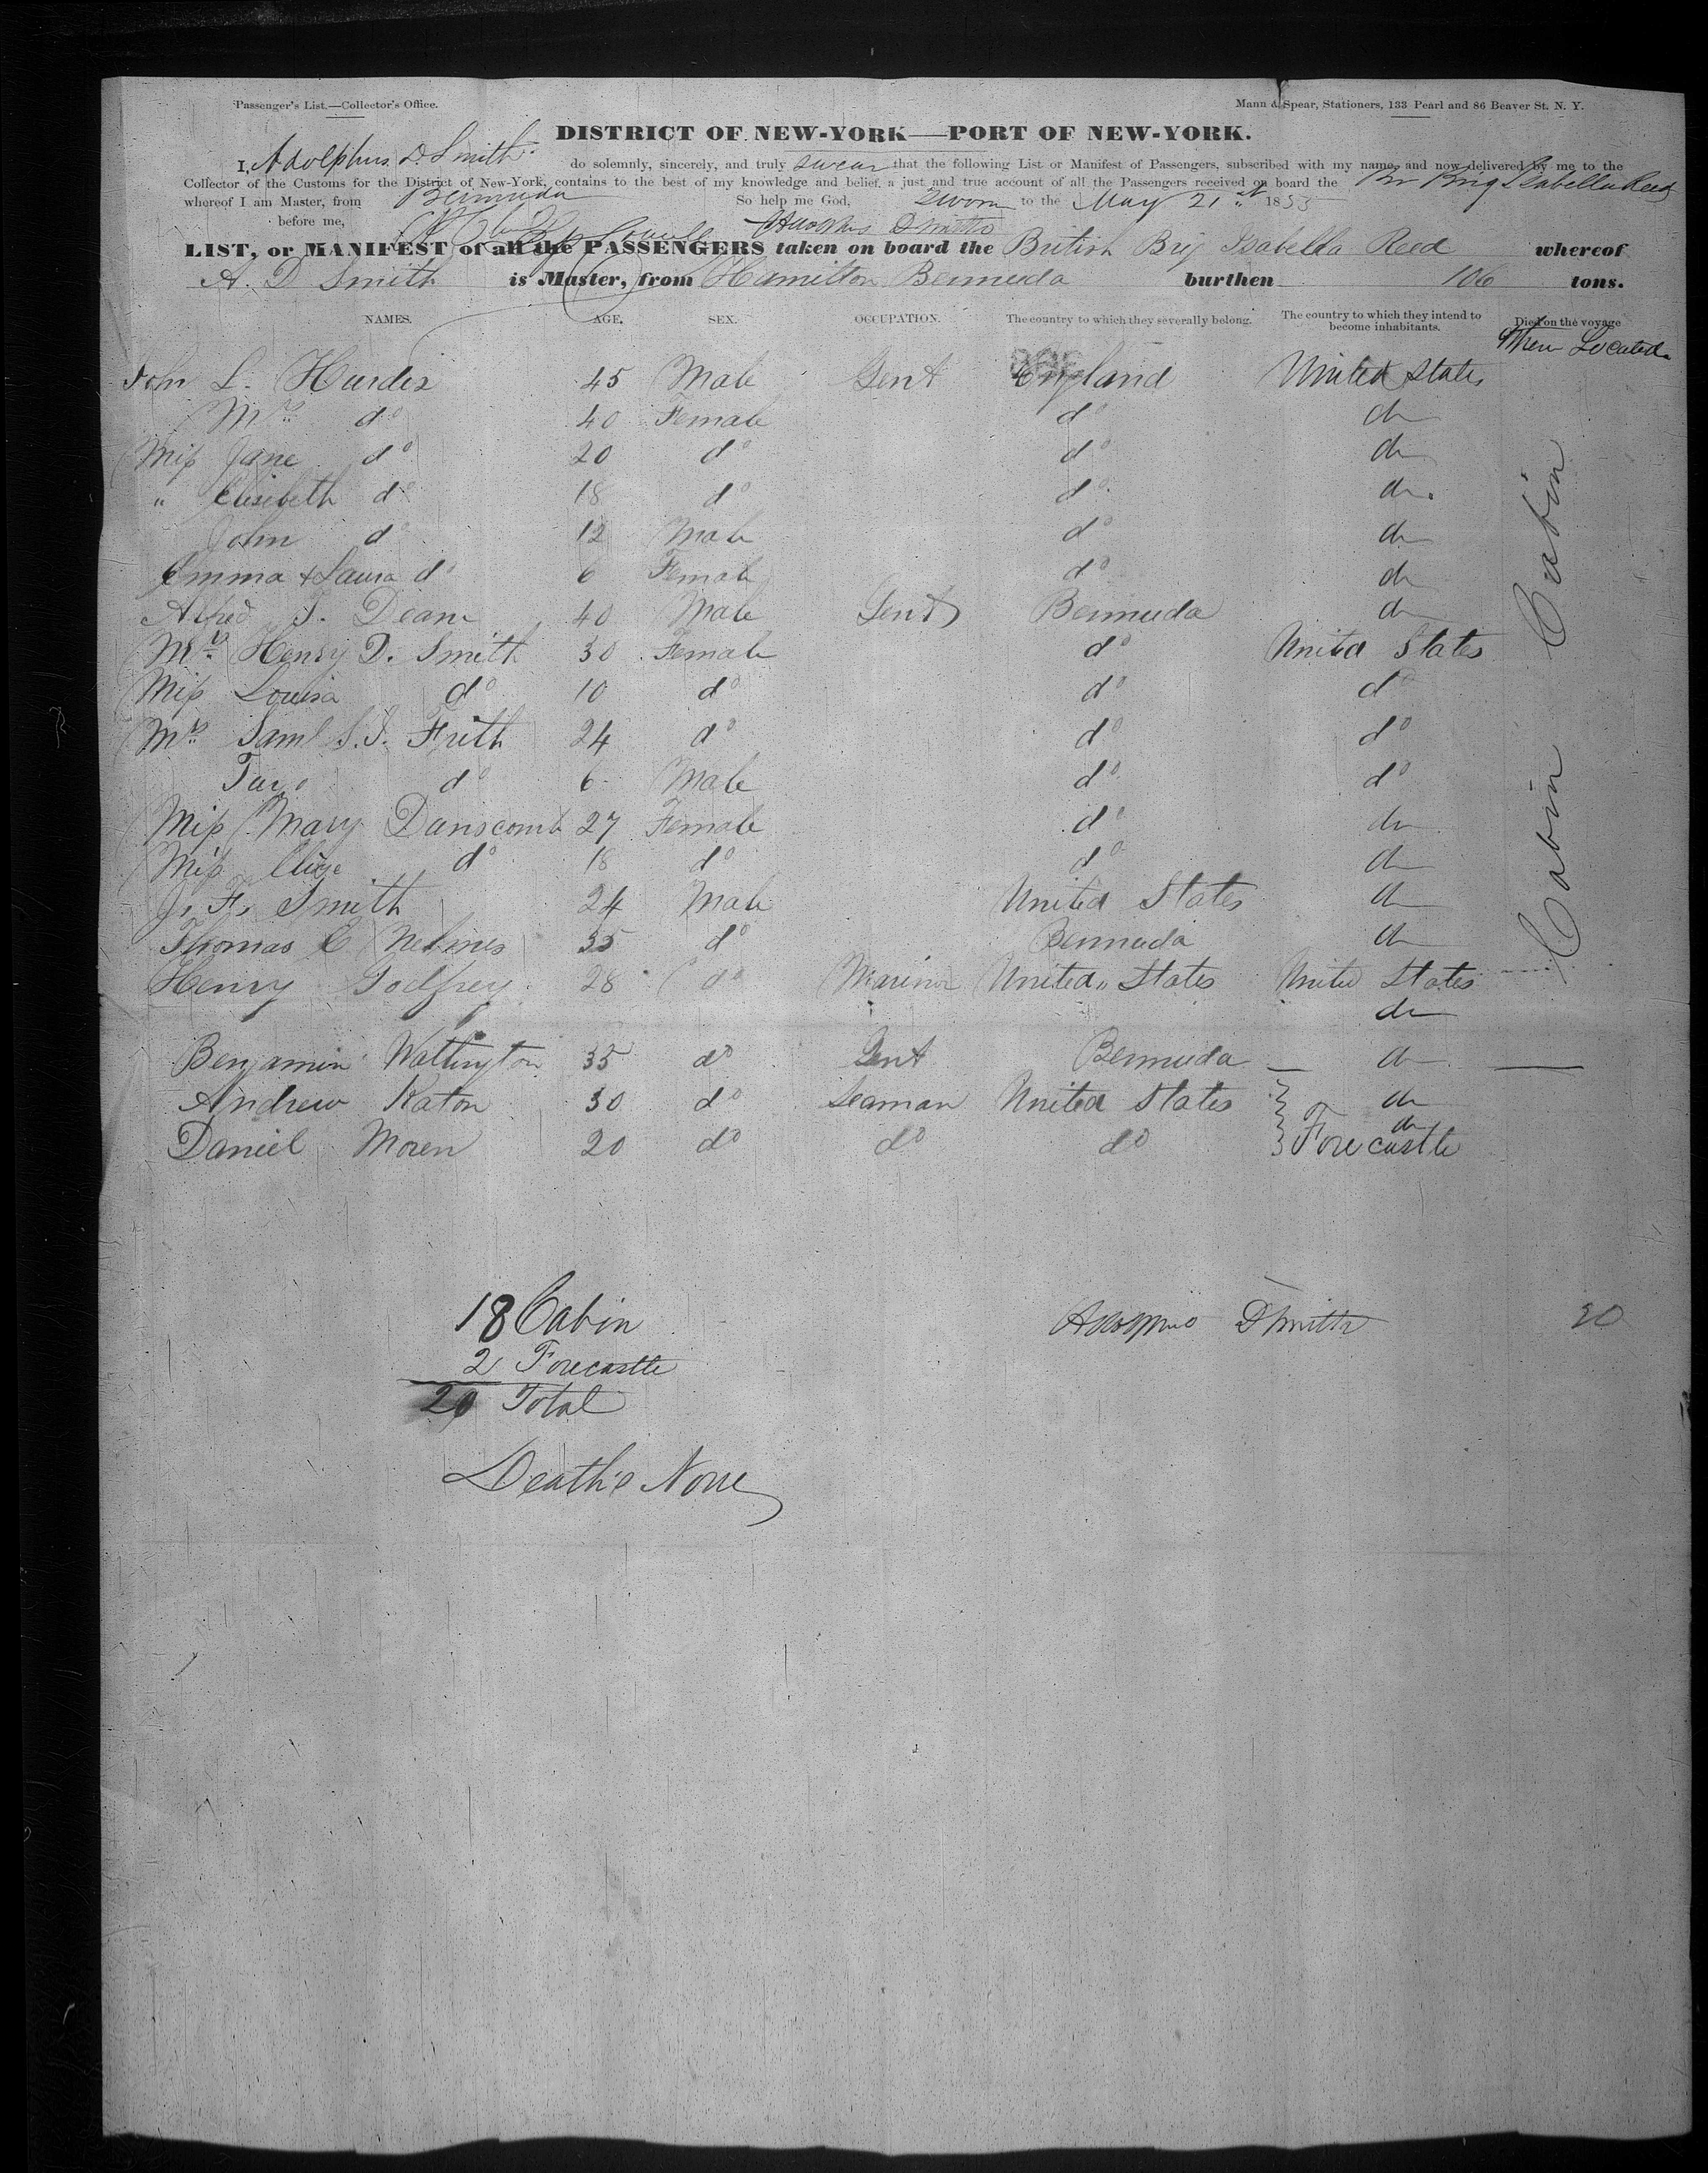 Passenger's List.—Collector's Office.
Mann & Spear, Stationers, 133 Pearl and 86 Beaver St. N. Y.
DISTRICT OF NEW-YORK—PORT OF NEW-YORK.
I, Adolphus D. Smith do solemnly, sincerely, and truly swear that the following List or Manifest of Passengers, subscribed with my name, and now delivered by me to the
Collector of the Customs for the District of New-York, contains to the best of my knowledge and belief, a just and true account of all the Passengers received on board the Br Brig Isabella Reed
whereof I am Master, from Bermuda So help me God, Sworn to the May 21st 1855
before me, Adolphus D Smith
LIST, or MANIFEST of all the PASSENGERS taken on board the British Brig Isabella Reed whereof
A. D Smith is Master, from Hamilton Bermuda burthen 106 tons.
NAMES. AGE. SEX. OCCUPATION. The country to which they severally belong. The country to which they intend to become inhabitants. Died on the voyage
When Located
John L. Hurdis 45 Male Gent England United States
Mrs do 40 Female do do
Miss Jane do 20 do do do
" Elisibeth do 18 do do do
John do 12 Male do do
Emma & Laura do 6 Female do do
Alfred T. Deane 40 Male Gent Bermuda do
Mrs Henry D. Smith 30 Female do United States
Miss Louisa do 10 do do do
Mrs Saml S. I. Frith 24 do do do
do 6 Male do do
Miss Mary Danscomb 27 Female do do
Miss do 18 do do do
J. F. Smith 24 Male United States do
Thomas C Nelmes 35 do Bermuda do
Henry Godfrey 28 do Marinor United States United States
do
Benjamin Wattington 35 do Gent Bermuda do
Andrew Katon 30 do Seaman United States do
do
Daniel Moren 20 do do do Forecastle
Cabin Cabin
18 Cabin
2 Forecastle
20 Total
Adolphus D Smith 20
Deaths None